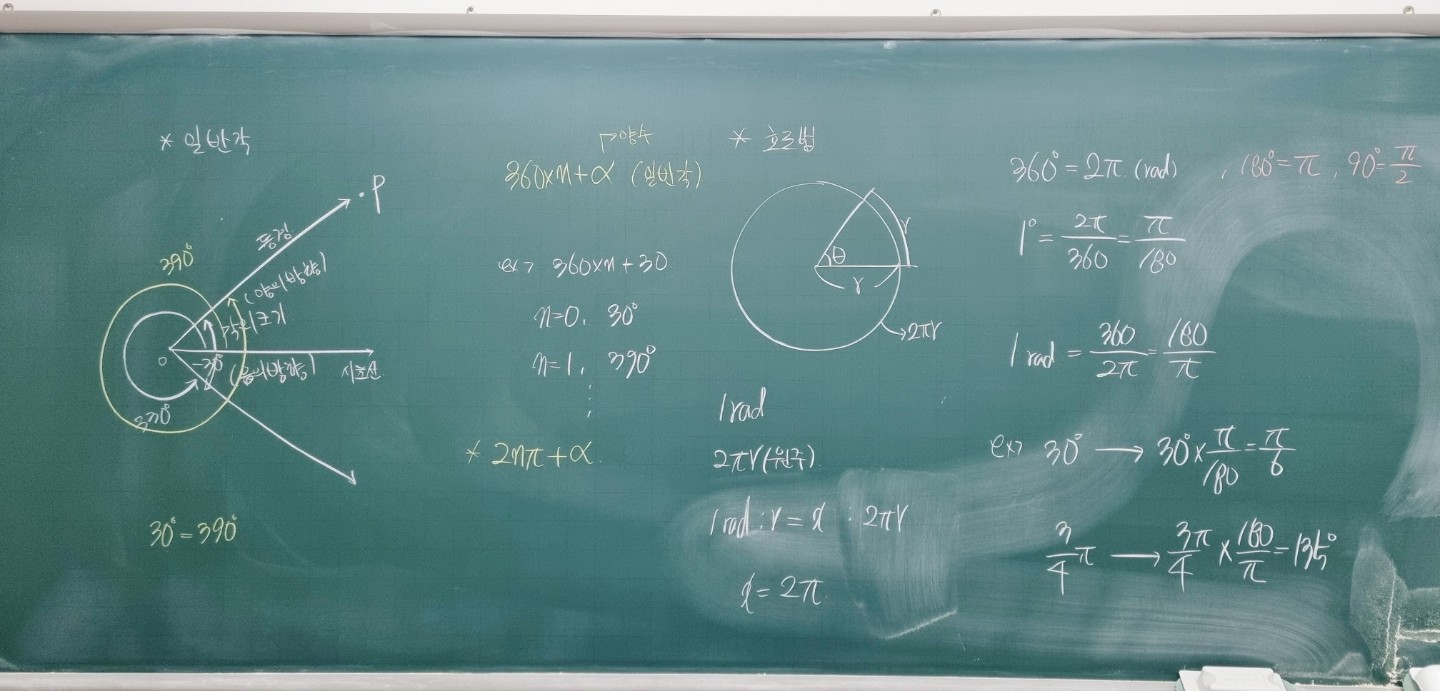 * 일반각
P
동경
390°
(양의방향)
각의크기
O
-30°
(음의방향)
시초선
330°
30°=390°
양수
360×n+α (일반각)
ex> 360×n+30
n=0, 30°
n=1, 390°
⋮
* 2nπ+α
* 호도법
θ
r
r
2πr
1rad
2πr(원주)
1rad : r = x : 2πr
x = 2π
360° = 2π (rad) , 180°=π, 90°=π/2
1° = 2π/360 = π/180
1 rad = 360/2π = 180/π
ex> 30° → 30°×π/180 = π/6
3/4 π → 3π/4 × 180/π = 135°